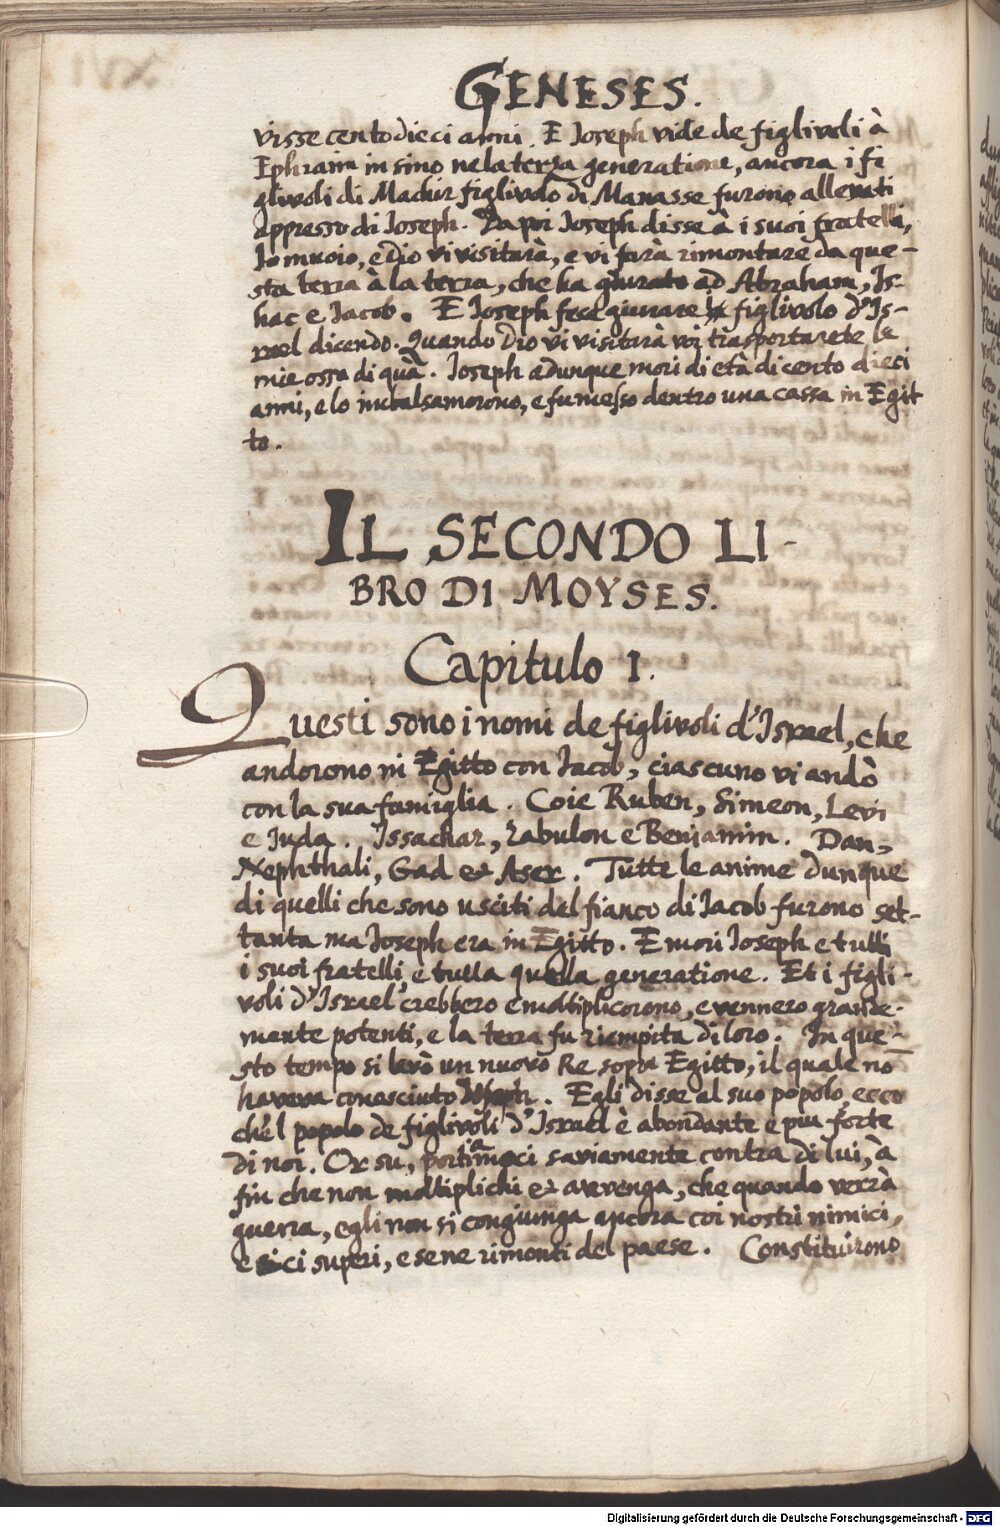 GENESES.
visse cento dieci anni. E Ioseph vide de figlivoli à
Ephraim in sino ne la terza generatione, ancora i fi
glivoli di Machir figlivolo di Manasse furono allevati
appresso di Ioseph. Da poi Ioseph disse à i suoi fratelli,
Io muoio, e Dio vi visitarà, e vi farà rimontare da que-
sta terra à la terra, che ha giurato ad Abraham, Is-
hac e Iacob. E Ioseph fece giurare figlivolo d'Is-
rael dicendo. Quando Dio vi visitarà voi trasportarete le
mie ossa di quà. Ioseph adunque mori di età di cento dieci
anni, e lo imbalsamorono, e fu messo dentro una cassa in Egit
to.
IL SECONDO LI-
BRO DI MOYSES.
Capitulo I.
Questi sono i nomi de figlivoli d'Israel, che
andorono in Egitto con Iacob, ciascuno vi andò
con la sua famiglia. Coie Ruben, Simeon, Levi
e Iuda. Issachar, Zabulon e Beniamin. Dan,
Nephthali, Gad et Aser. Tutte le anime dunque
di quelli che sono usciti del fianco di Iacob furono set-
tanta ma Ioseph era in Egitto. E mori Ioseph e tutti
i suoi fratelli, e tutta quella generatione. Et i figli-
voli d'Israel crebbero e moltiplicorono, e vennero grande-
mente potenti, e la terra fu riempita di loro. In que-
sto tempo si levò un nuovo Re sopra Egitto, il quale nō
haveva conosciuto Ioseph. Egli disse al suo popolo, ecco
che'l popolo de figlivoli d'Israel è abondante e piu forte
di noi. Or su, portiamoci saviamente contra di lui, à
fin che non moltiplichi et avvenga, che quando verrà
guerra, egli non si congiunga ancora coi nostri nimici,
e ci superi, e se ne rimonti del paese. Constituirono
Digitalisierung gefördert durch die Deutsche Forschungsgemeinschaft - DFG